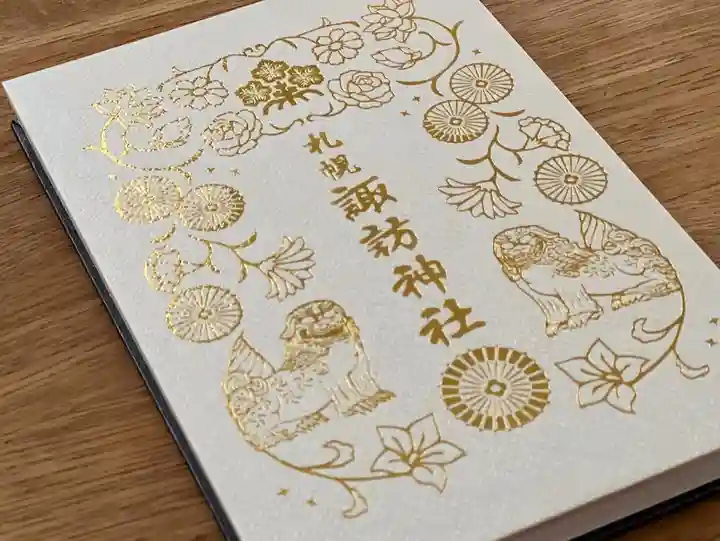 札幌
諏訪神社